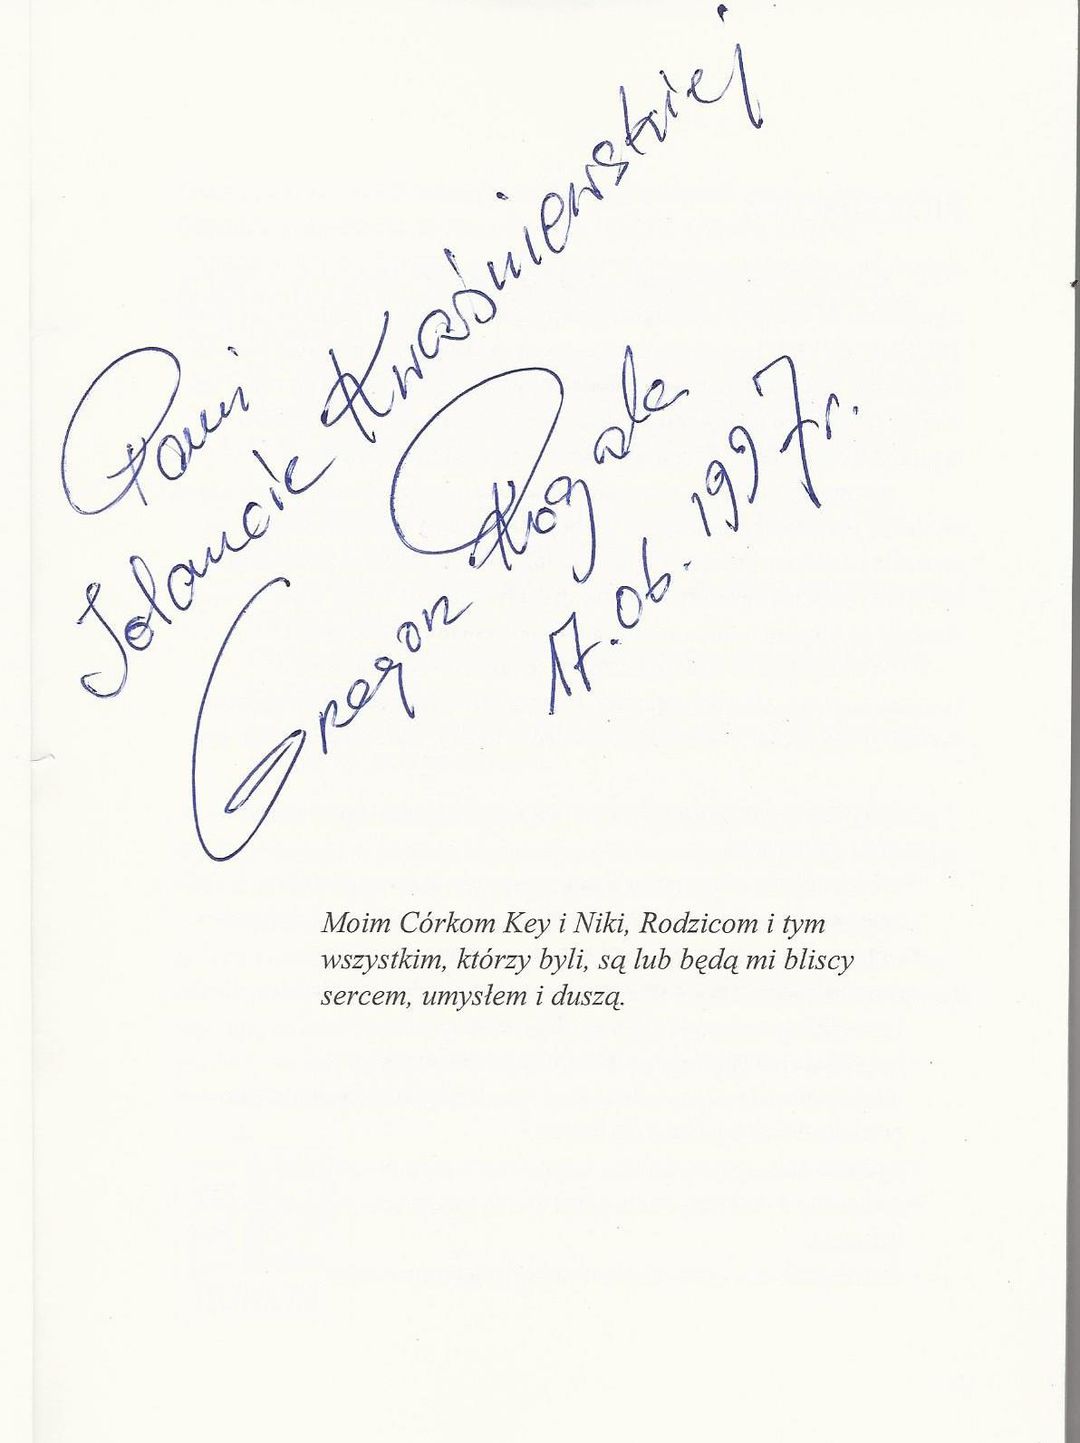 Pani
Jolancie Kwaśniewskiej
Grzegorz Rogala
17.06.1997r.
Moim Córkom Key i Niki, Rodzicom i tym
wszystkim, którzy byli, są lub będą mi bliscy
sercem, umysłem i duszą.